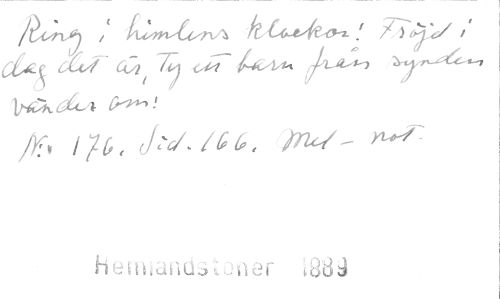 Ring i himlens klockor! Fröjd i
dag det är, Ty ett barn från synden
vänder om!
No. 176. Sid. 166. Mel - not.
Hemlandstoner 1889